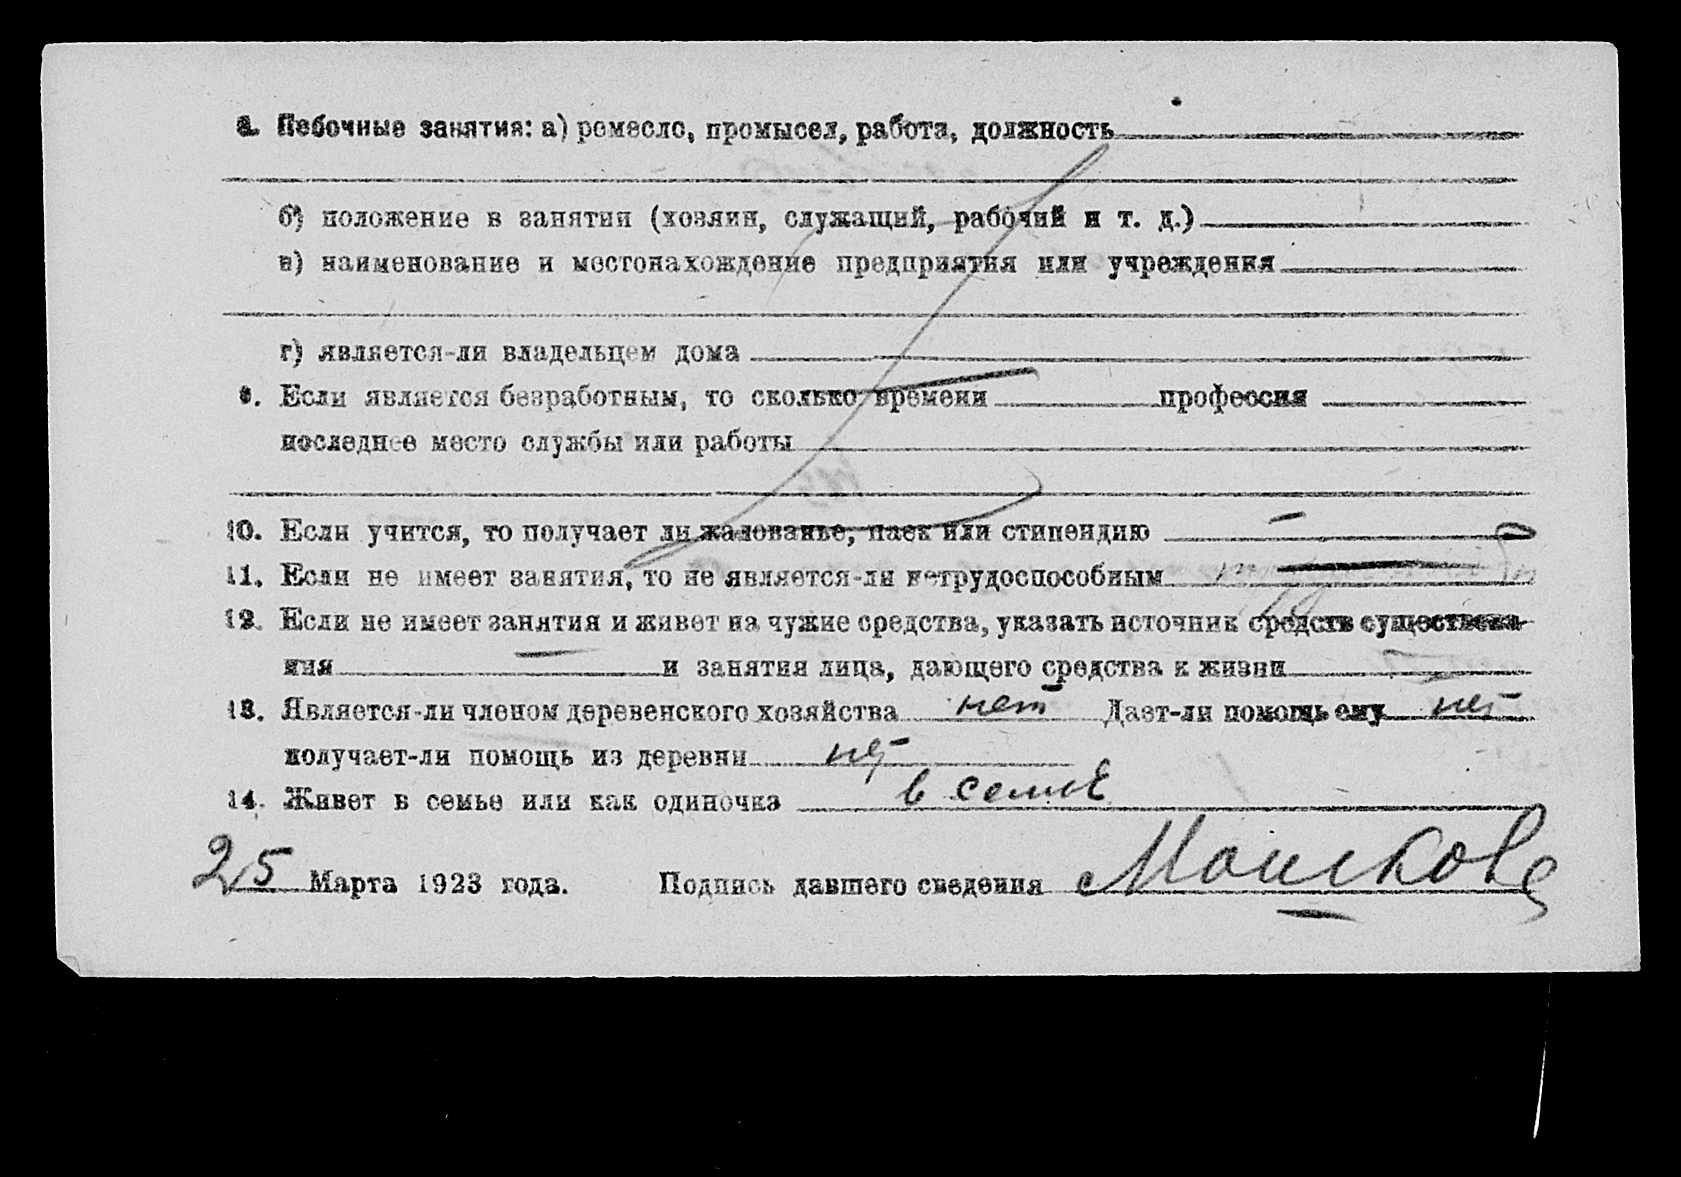 8. Побочные занятия: а) ремесло, промысел, работа, должность
б) положение в занятии (хозяин, служащий, рабочий и т. д.)
в) наименование и местонахождение предприятия или учреждения
г) является-ли владельцем дома
9. Если является безработным, то сколько времени профессия
последнее место службы или работы
10. Если учится, то получает ли жалованье, паек или стипендию —
11. Если не имеет занятия, то не является-ли нетрудоспособным
12. Если не имеет занятия и живет на чужие средства, указать источник средств существова-
ния — и занятия лица, дающего средства к жизни —
13. Является-ли членом деревенского хозяйства нет Дает-ли помощь ему нет
получает-ли помощь из деревни нет
14. Живет в семье или как одиночка в семье
25 Марта 1923 года. Подпись давшего сведения Мошкова